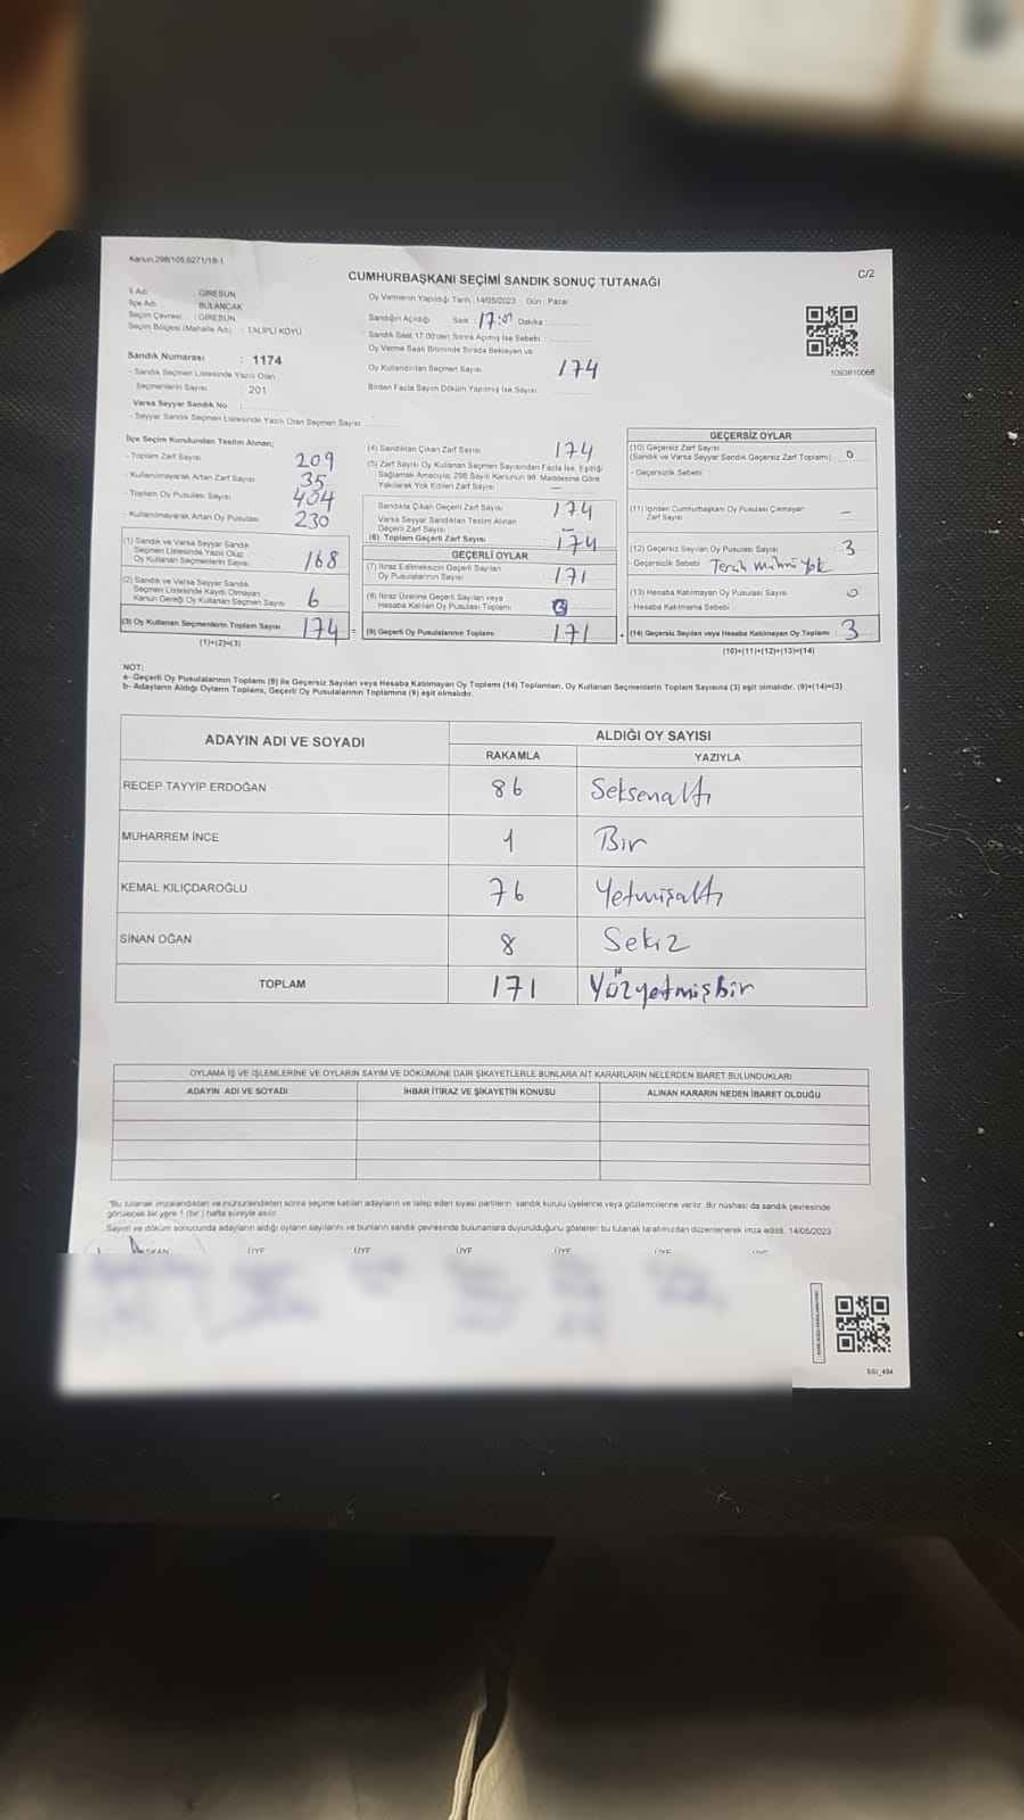 Kanun:298/105,6271/18-1
C/2
CUMHURBAŞKANI SEÇİMİ SANDIK SONUÇ TUTANAĞI
İl Adı : GİRESUN
İlçe Adı : BULANCAK
Seçim Çevresi : GİRESUN
Seçim Bölgesi (Mahalle Adı) : TALİPLİ KÖYÜ
Sandık Numarası : 1174
- Sandık Seçmen Listesinde Yazılı Olan
Seçmenlerin Sayısı 201
Varsa Seyyar Sandık No :
- Seyyar Sandık Seçmen Listesinde Yazılı Olan Seçmen Sayısı
Oy Vermenin Yapıldığı Tarih : 14/05/2023 Gün : Pazar
Sandığın Açıldığı Saat : 17:01 Dakika :
Sandık Saat 17.00'den Sonra Açılmış İse Sebebi :
Oy Verme Saati Bitiminde Sırada Bekleyen ve
Oy Kullandırılan Seçmen Sayısı 174
Birden Fazla Sayım Döküm Yapılmış İse Sayısı
İlçe Seçim Kurulundan Teslim Alınan;
- Toplam Zarf Sayısı 209
- Kullanılmayarak Artan Zarf Sayısı 35
- Toplam Oy Pusulası Sayısı 404
- Kullanılmayarak Artan Oy Pusulası 230
(1) Sandık ve Varsa Seyyar Sandık
Seçmen Listesinde Yazılı Olup
Oy Kullanan Seçmenlerin Sayısı 168
(2) Sandık ve Varsa Seyyar Sandık
Seçmen Listesinde Kayıtlı Olmayan
Kanun Gereği Oy Kullanan Seçmen Sayısı 6
(3) Oy Kullanan Seçmenlerin Toplam Sayısı 174 =
(1)+(2)=(3)
(4) Sandıktan Çıkan Zarf Sayısı 174
(5) Zarf Sayısı Oy Kullanan Seçmen Sayısından Fazla İse, Eşitliği
Sağlamak Amacıyla; 298 Sayılı Kanunun 98. Maddesine Göre
Yakılarak Yok Edilen Zarf Sayısı –
Sandıkta Çıkan Geçerli Zarf Sayısı 174
Varsa Seyyar Sandıktan Teslim Alınan
Geçerli Zarf Sayısı –
(6) Toplam Geçerli Zarf Sayısı 174
GEÇERLİ OYLAR
(7) İtiraz Edilmeksizin Geçerli Sayılan
Oy Pusulalarının Sayısı 171
(8) İtiraz Üzerine Geçerli Sayılan veya
Hesaba Katılan Oy Pusulası Toplamı
(9) Geçerli Oy Pusulalarının Toplamı 171 +
GEÇERSİZ OYLAR
(10) Geçersiz Zarf Sayısı
(Sandık ve Varsa Seyyar Sandık Geçersiz Zarf Toplamı) 0
- Geçersizlik Sebebi
(11) İçinden Cumhurbaşkanı Oy Pusulası Çıkmayan
Zarf Sayısı –
(12) Geçersiz Sayılan Oy Pusulası Sayısı 3
- Geçersizlik Sebebi Tercih Mührü Yok
(13) Hesaba Katılmayan Oy Pusulası Sayısı 0
- Hesaba Katılmama Sebebi
(14) Geçersiz Sayılan veya Hesaba Katılmayan Oy Toplamı 3
(10)+(11)+(12)+(13)=(14)
NOT:
a- Geçerli Oy Pusulalarının Toplamı (9) ile Geçersiz Sayılan veya Hesaba Katılmayan Oy Toplamı (14) Toplamları, Oy Kullanan Seçmenlerin Toplam Sayısına (3) eşit olmalıdır. (9)+(14)=(3)
b- Adayların Aldığı Oyların Toplamı, Geçerli Oy Pusulalarının Toplamına (9) eşit olmalıdır.
ADAYIN ADI VE SOYADI
ALDIĞI OY SAYISI
RAKAMLA YAZIYLA
RECEP TAYYİP ERDOĞAN 86 Seksenaltı
MUHARREM İNCE 1 Bir
KEMAL KILIÇDAROĞLU 76 Yetmişaltı
SİNAN OĞAN 8 Sekiz
TOPLAM 171 Yüzyetmişbir
OYLAMA İŞ VE İŞLEMLERİNE VE OYLARIN SAYIM VE DÖKÜMÜNE DAİR ŞİKAYETLERLE BUNLARA AİT KARARLARIN NELERDEN İBARET BULUNDUKLARI
ADAYIN ADI VE SOYADI İHBAR İTİRAZ VE ŞİKAYETİN KONUSU ALINAN KARARIN NEDEN İBARET OLDUĞU
*Bu tutanak imzalandıktan ve mühürlendikten sonra seçime katılan adayların ve talep eden siyasi partilerin sandık kurulu üyelerine veya gözlemcilerine verilir. Bir nüshası da sandık çevresinde
görülecek bir yere 1 (bir) hafta süreyle asılır.
Sayım ve döküm sonucunda adayların aldığı oyların sayılarını ve bunların sandık çevresinde bulunanlara duyurulduğunu gösteren bu tutanak tarafımızdan düzenlenerek imza edildi. 14/05/2023
BAŞKAN ÜYE ÜYE ÜYE ÜYE ÜYE ÜYE